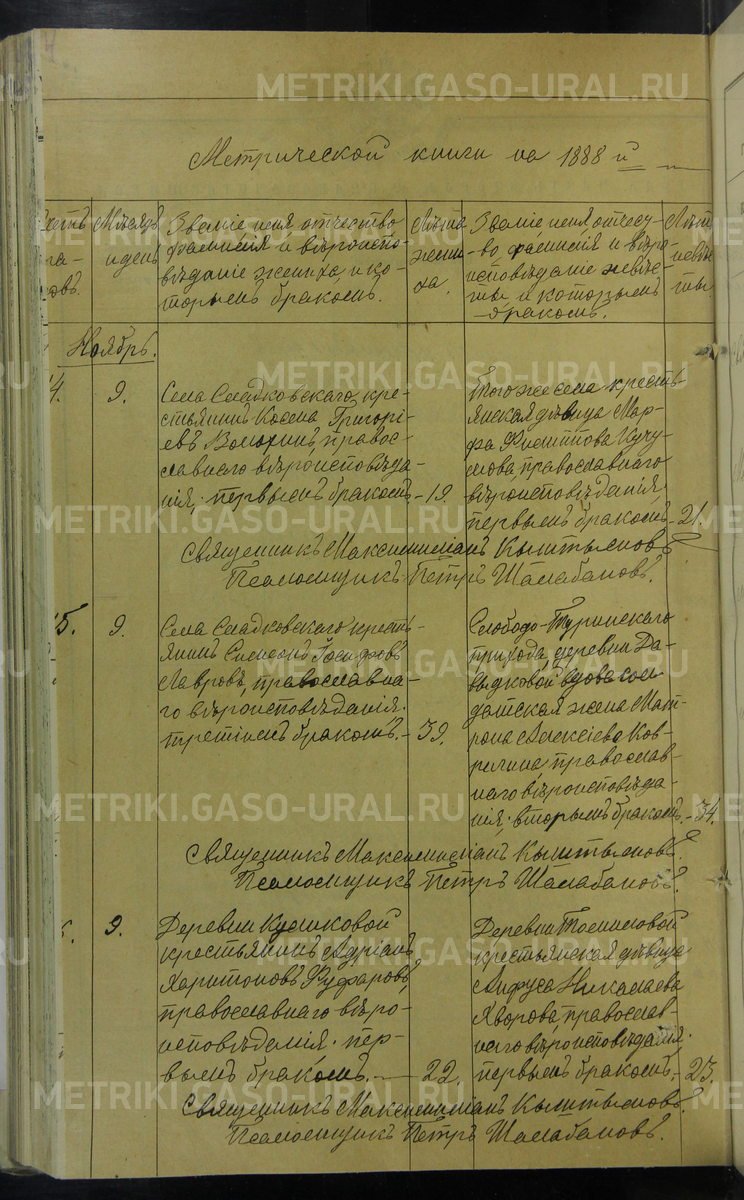 METRIKI.GASO-URAL.RU
Метрической книги на 1888 й
Мѣсяцъ
и день
Званіе, имя, отчество
фамилія и вѣроиспо-
вѣданіе жениха и ко-
торымъ бракомъ.
Лѣта
жени
ха.
Званіе, имя, отчест-
во, фамилія и вѣро-
исповѣданіе невѣс-
ты и которымъ
бракомъ.
Лѣт
невѣс
ты.
Ноябрь.
4.
9.
Села Сладковскаго кре-
стьянинъ Косма Григорі-
евъ правос-
лавнаго вѣроисповѣда-
нія, первымъ бракомъ - 19.
Того же села кресть-
янская дѣвица Мар-
фа Филиппова Кучу-
мова, православнаго
вѣроисповѣданія
первымъ бракомъ - 21.
Священникъ Максимиліанъ Кыштымовъ
Псаломщикъ Петръ Шалабановъ.
5.
9.
Села Сладковскаго кресть-
янинъ Симеонъ Іосифовъ
Лавровъ, православна-
го вѣроисповѣданія.
третіимъ бракомъ. - 39.
Слободо-Туринскаго
прихода деревни Да-
выдковой вдова сол-
датская жена Мат-
рона Алексіева Ков-
ригина православ-
наго вѣроисповѣда-
нія; вторымъ бракомъ. - 34.
Священникъ Максимиліанъ Кыштымовъ.
Псаломщикъ Петръ Шалабановъ.
9.
Деревни Куликовой
крестьянинъ Адріанъ
Харитоновъ
православнаго вѣро-
исповѣданія. пер-
вымъ бракомъ. - 22.
Деревни Томиловой
крестьянская дѣвица
Анфуса Николаева
Хворова, православ-
наго вѣроисповѣданія.
первымъ бракомъ. - 23.
Священникъ Максимиліанъ Кыштымовъ.
Псаломщикъ Петръ Шалабановъ.